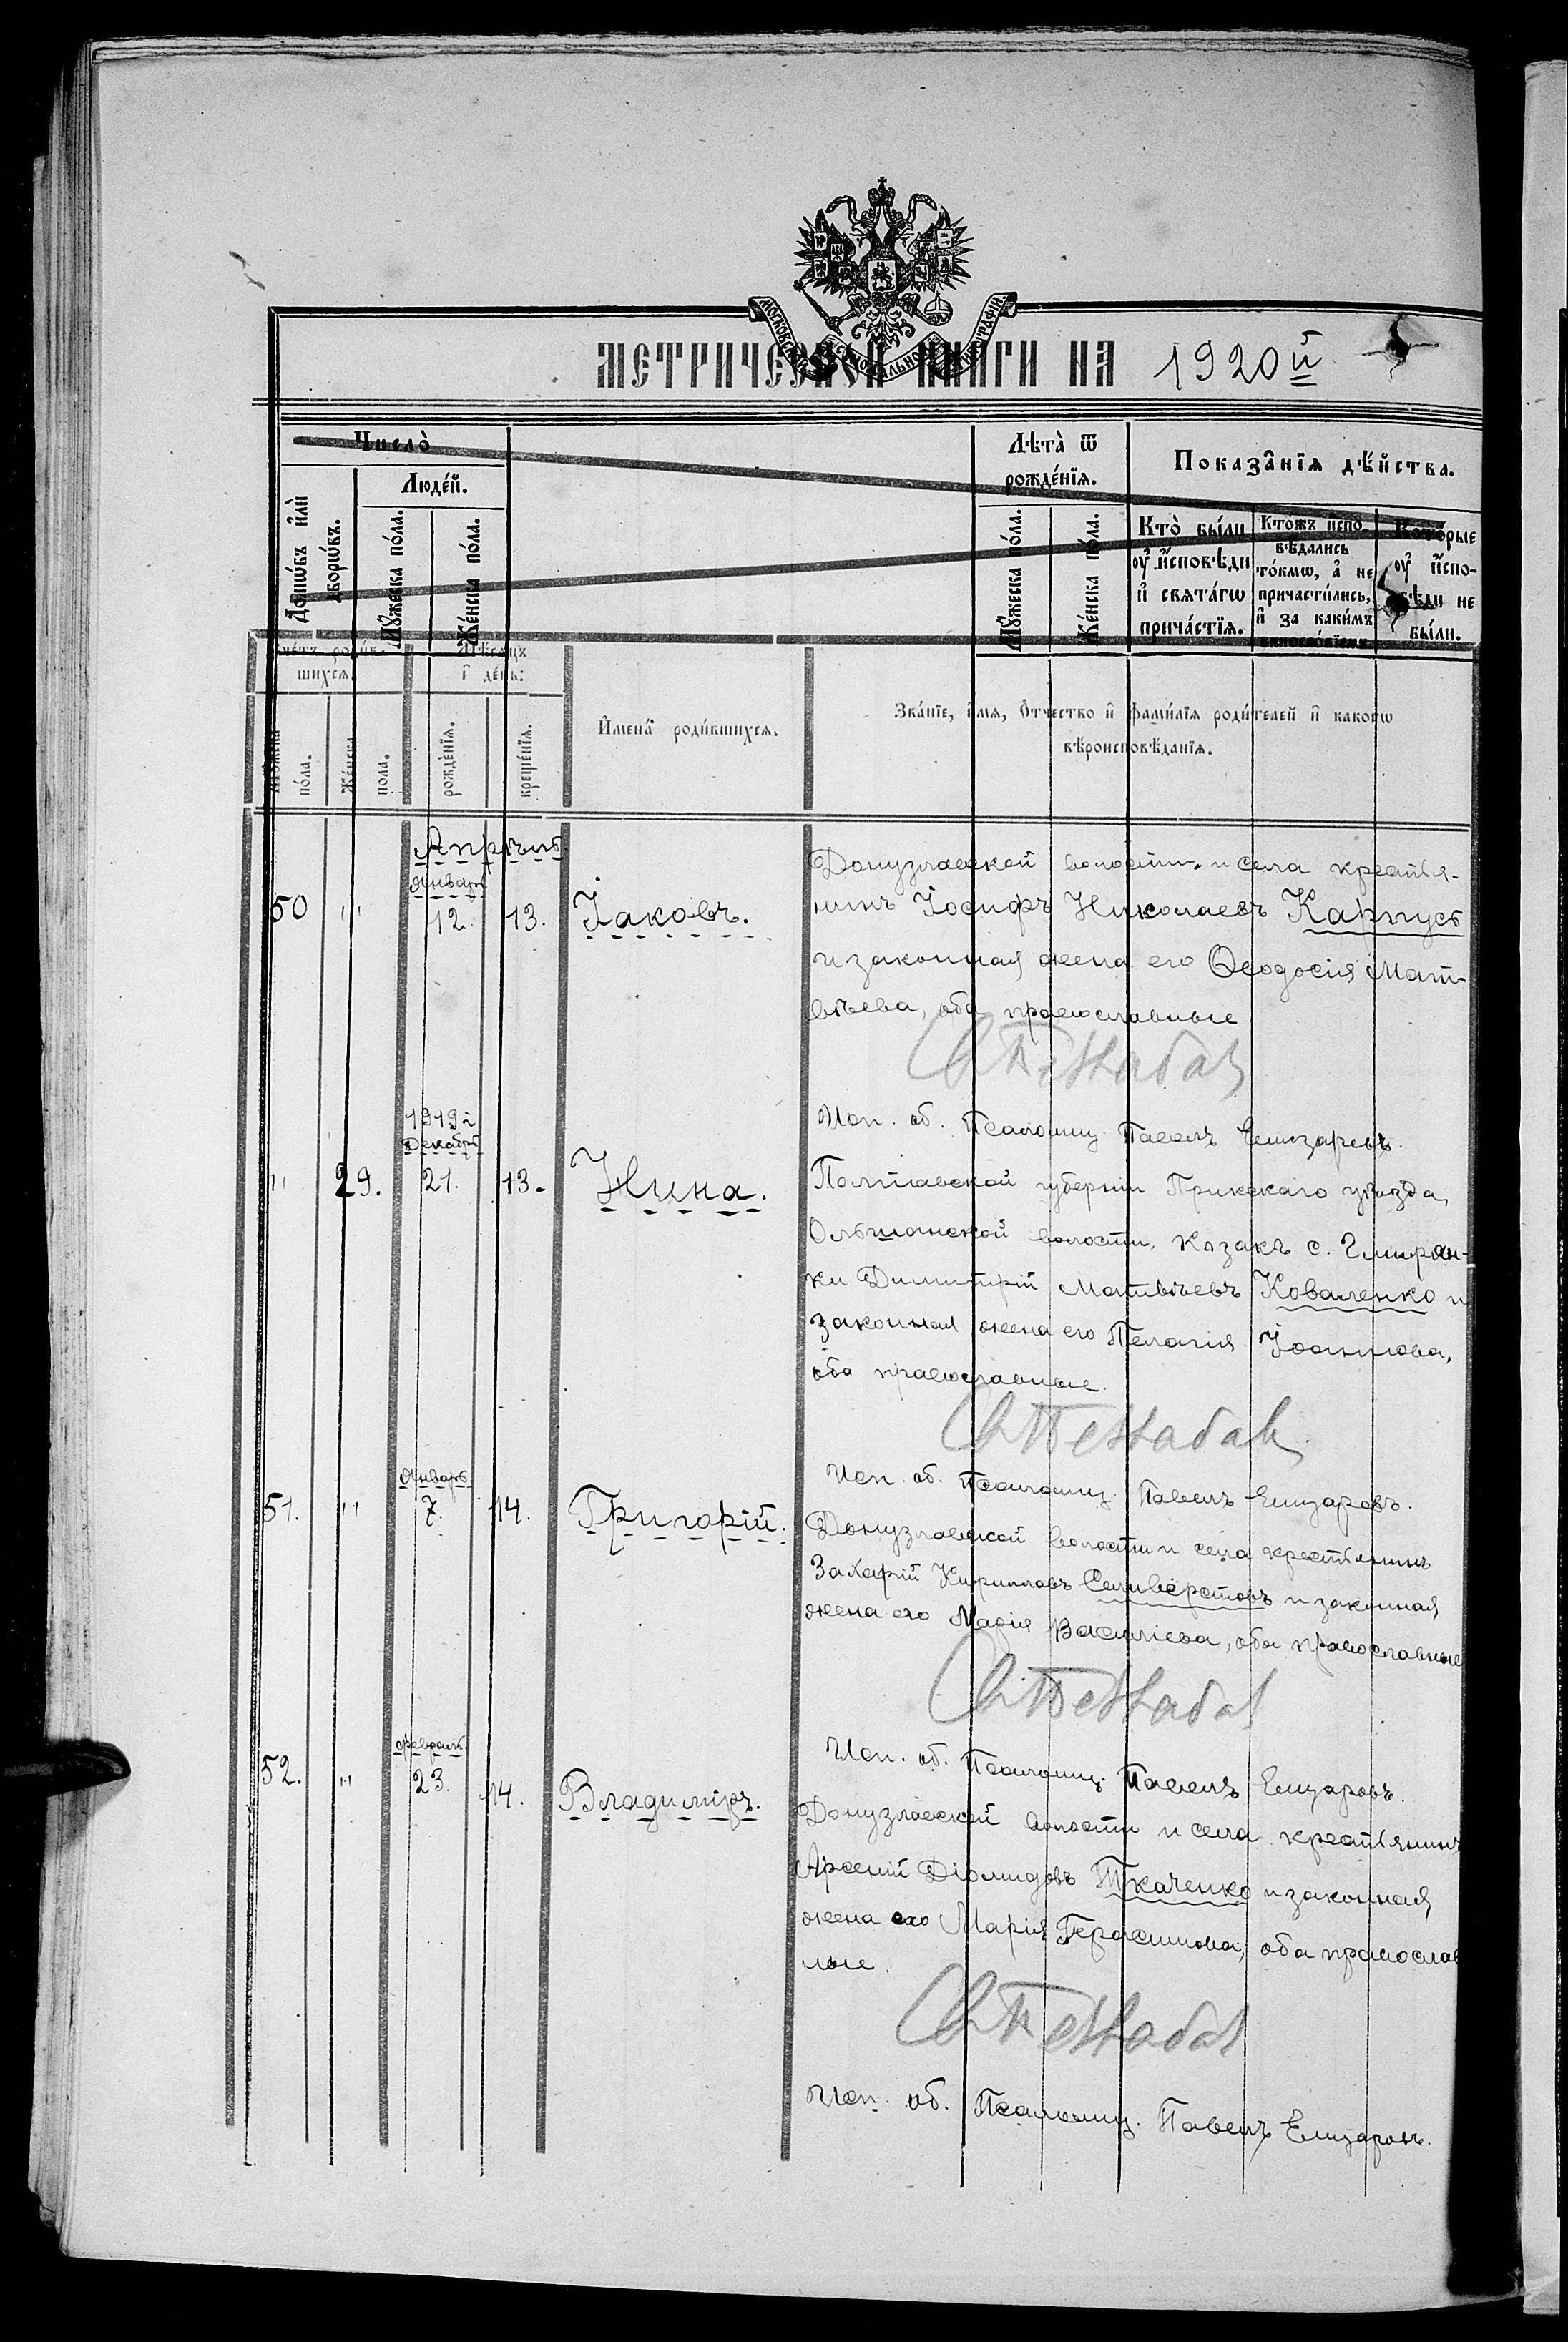 МОСКОВСКОЙ СѴНОДАЛЬНОЙ ТИПОГРАФІИ
МЕТРИЧЕСКОЙ КНИГИ НА 1920й
Число̀
Людéй.
Домѡвъ и҆лѝ дворѡ́въ.
Мꙋ́жеска пóла.
Жéнска пóла.
Лѣта̀ ѿ рождéнїѧ.
Мꙋ́жеска пóла.
Жéнска пóла.
Показа̑нїѧ дѣ́йства.
Кто̀ бы́ли
ᲂу҆ и҆́сповѣди
и҆ свѧта́гѡ
прича́стїѧ.
Кто́жъ и҆спо-
вѣ́дались
то́кмѡ, а҆ не
причасти́лись,
и҆ за каки́мъ
Кото́рые
ᲂу҆ и҆спо-
вѣди не
бы́ли.
Счетъ роди́в-
шихсѧ.
Мѣ́сѧцъ
и҆ де́нь:
Мꙋ́жеска пóла.
Жéнска пола.
рождéнїѧ.
крещéнїѧ.
И҆мена̀ роди́вшихсѧ.
Зва́нїе, и҆́мѧ, ѻ҆́тчество и҆ фами́лїѧ роди́телей и҆ какогѡ
вѣроисповѣ́данїѧ.
Апрѣль.
Январь
50 " 12. 13. Іаковъ.
Донузлавской волости и села кресть-
янинъ Іосифъ Николаевъ Карпусь
и законная жена его Ѳеодосія Мат-
вѣева, оба православные
Исп. об. Псаломщ. Павелъ Елизаровъ.
1919 г.
Декабрь
" 29. 21. 13. Нина.
Полтавской губерніи Прилукскаго уѣзда,
Ольшанской волости, казакъ с. Гмирян-
ки Димитрій Матвѣевъ Коваленко и
законная жена его Пелагія Іоаннова,
оба православные.
Исп. об. Псаломщ. Павелъ Елизаровъ.
Январь.
51. " 7. 14. Григорій.
Донузлавской волости и села крестьянинъ
Захарій Кирилловъ Селиверстовъ и законная
жена его Марія Василіева, оба православные
Исп. об. Псаломщ. Павелъ Елизаровъ.
Февраль.
52. " 23. 14. Владиміръ.
Донузлавской волости и села крестьянинъ
Арсеній Діомидовъ Ткаченко и законная
жена его Марія Герасимова, оба православ
ные.
Исп. об. Псаломщ. Павелъ Елизаровъ.